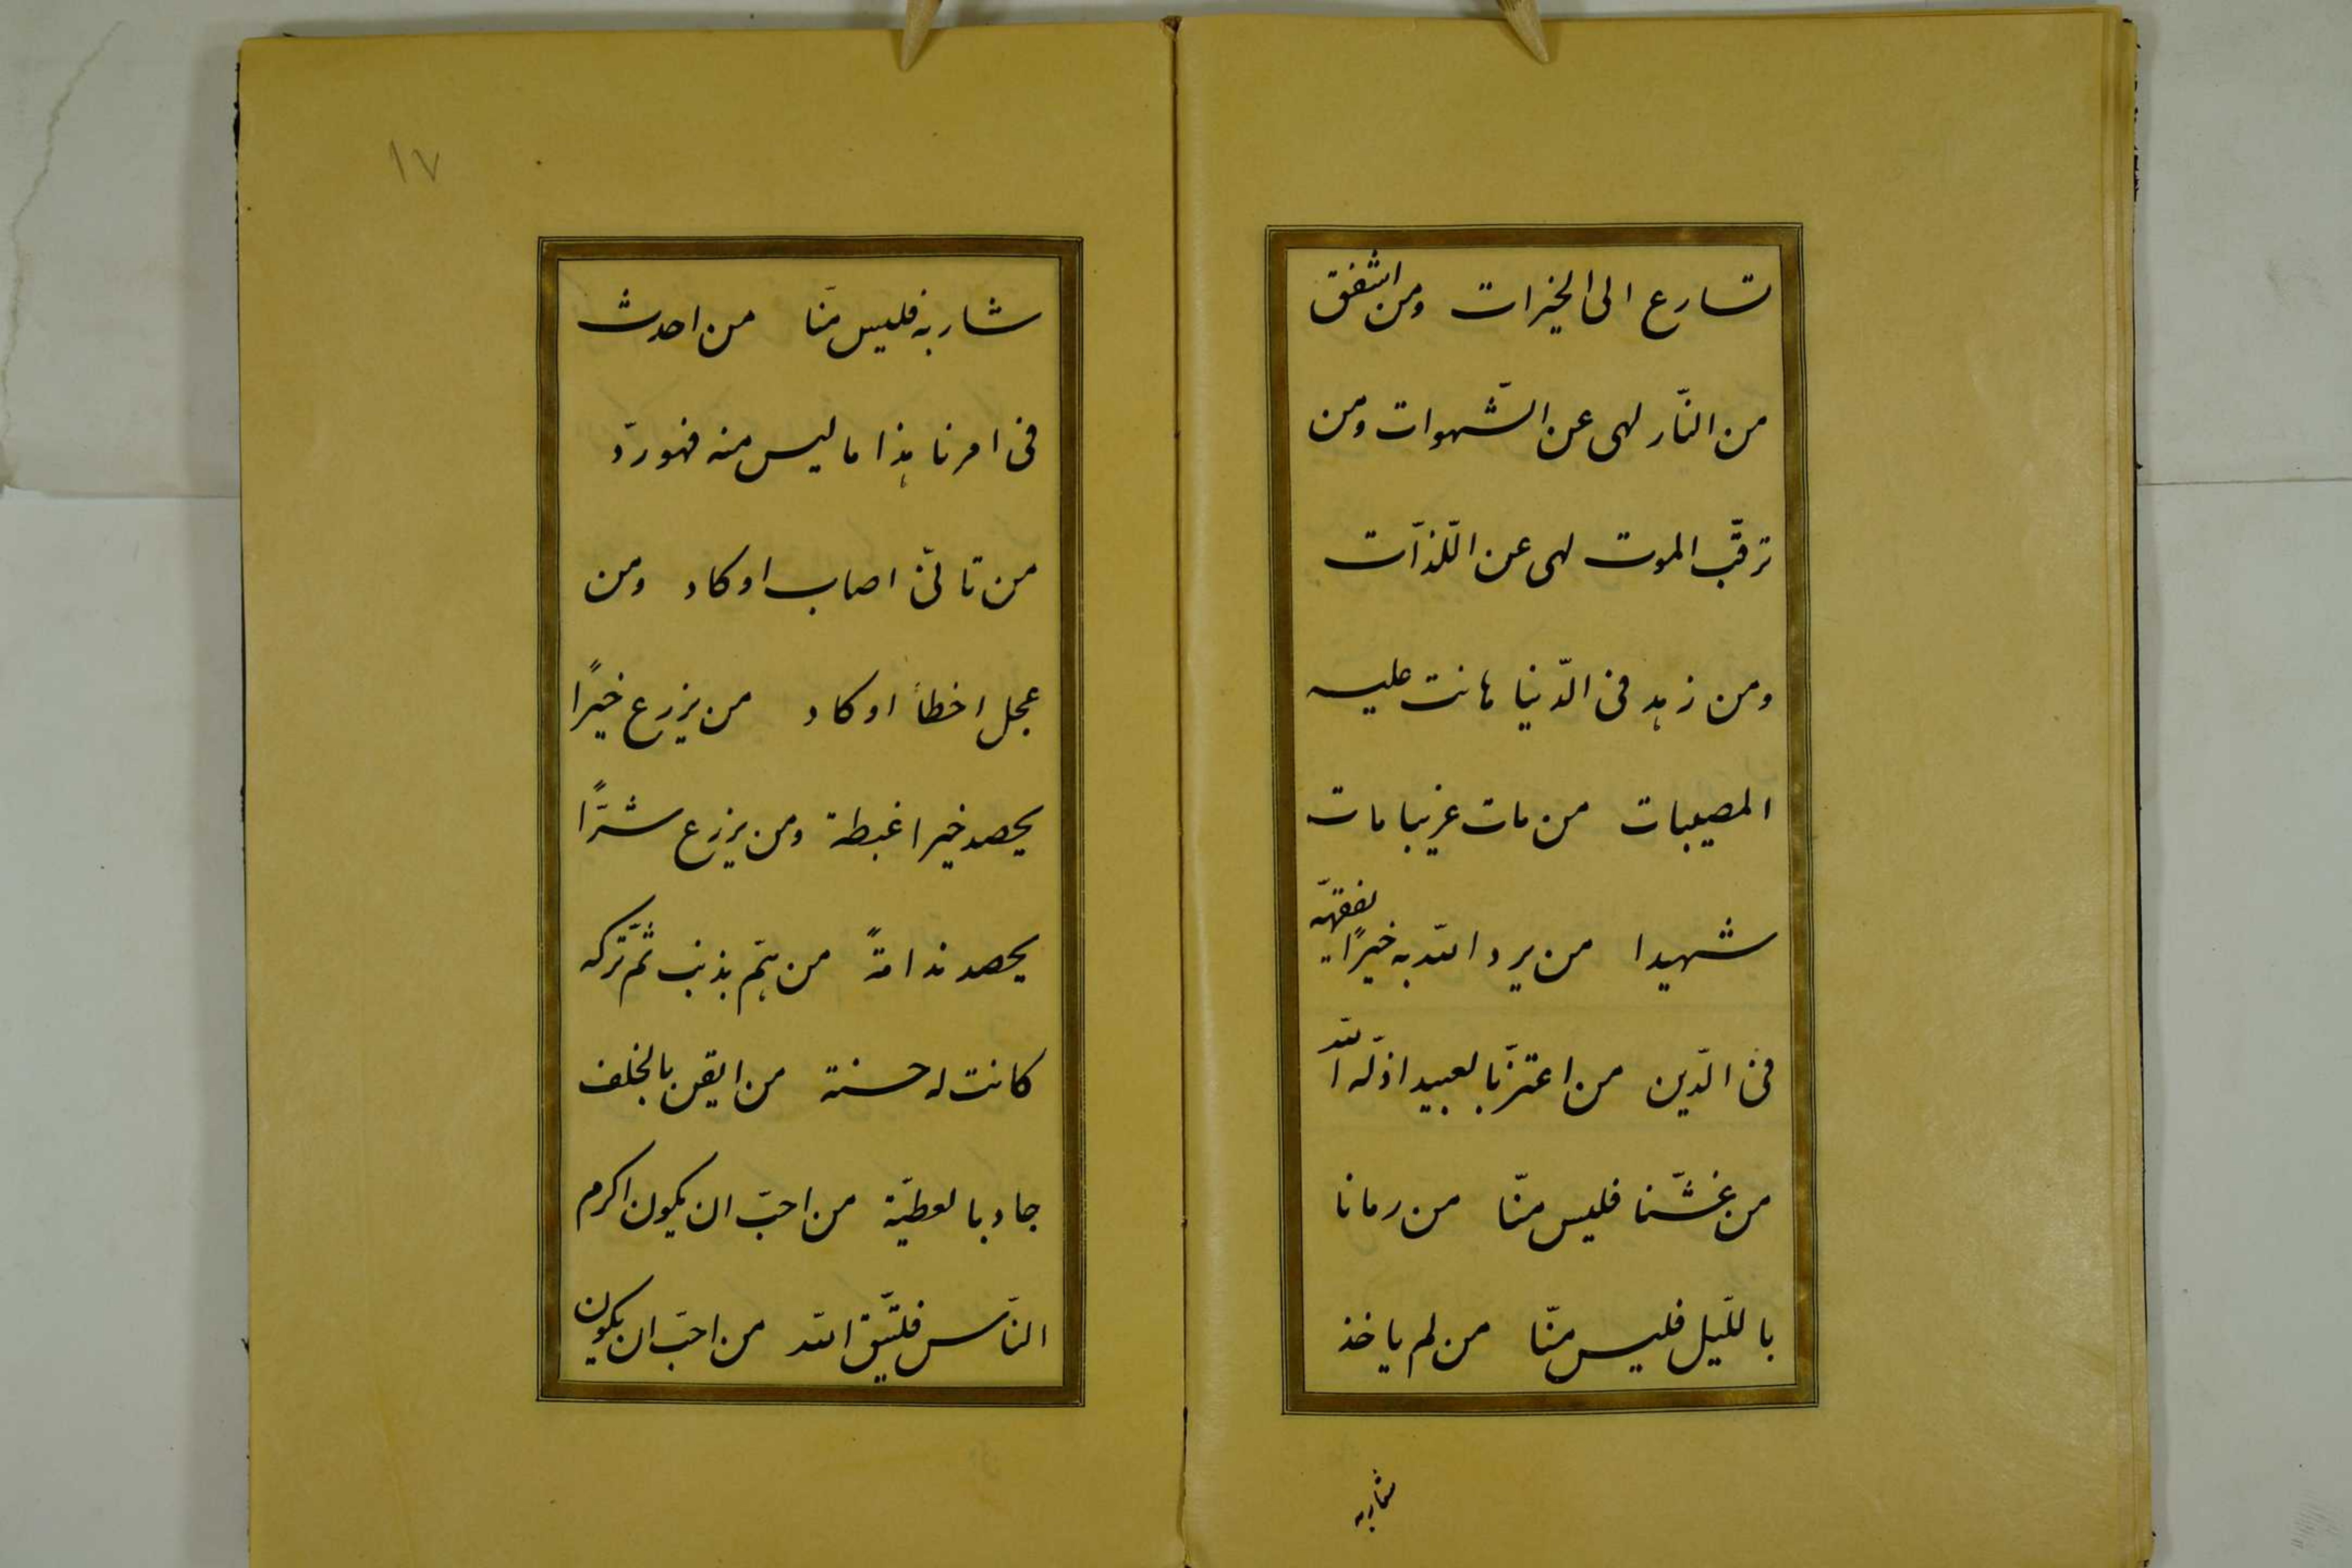 تسارع الى الخيرات ومن اشفق
من النّار لهى عن الشّهوات ومن
ترقّب الموت لهى عن اللّذّات
ومن زهد فى الدّنيا هانت عليه
المصيبات من مات غريبا مات
شهيدا من يرد اللّه به خيرًا يفقهّه
فى الدّين من اعتزّ بالعبيد اذلّه اللّه
من غشّنا فليس منّا من رمانا
بالليّل فليس منّا من لم ياخذ
شاربه
١٧
شاربه فليس منّا من احدث
فى امرنا هذا ما ليس منه فهو ردّ
من تانّى اصاب او كاد ومن
عجل اخطأ او كاد من يزرع خيرًا
يحصد خيرا غبطة ومن يزرع شرًّا
يحصد ندامةً من همّ بذنب ثمّ تركه
كانت له حسنة من ايقن بالخلف
جاد بالعطيّة من احبّ ان يكون اكرم
النّاس فليتّق اللّه من احبّ ان يكون